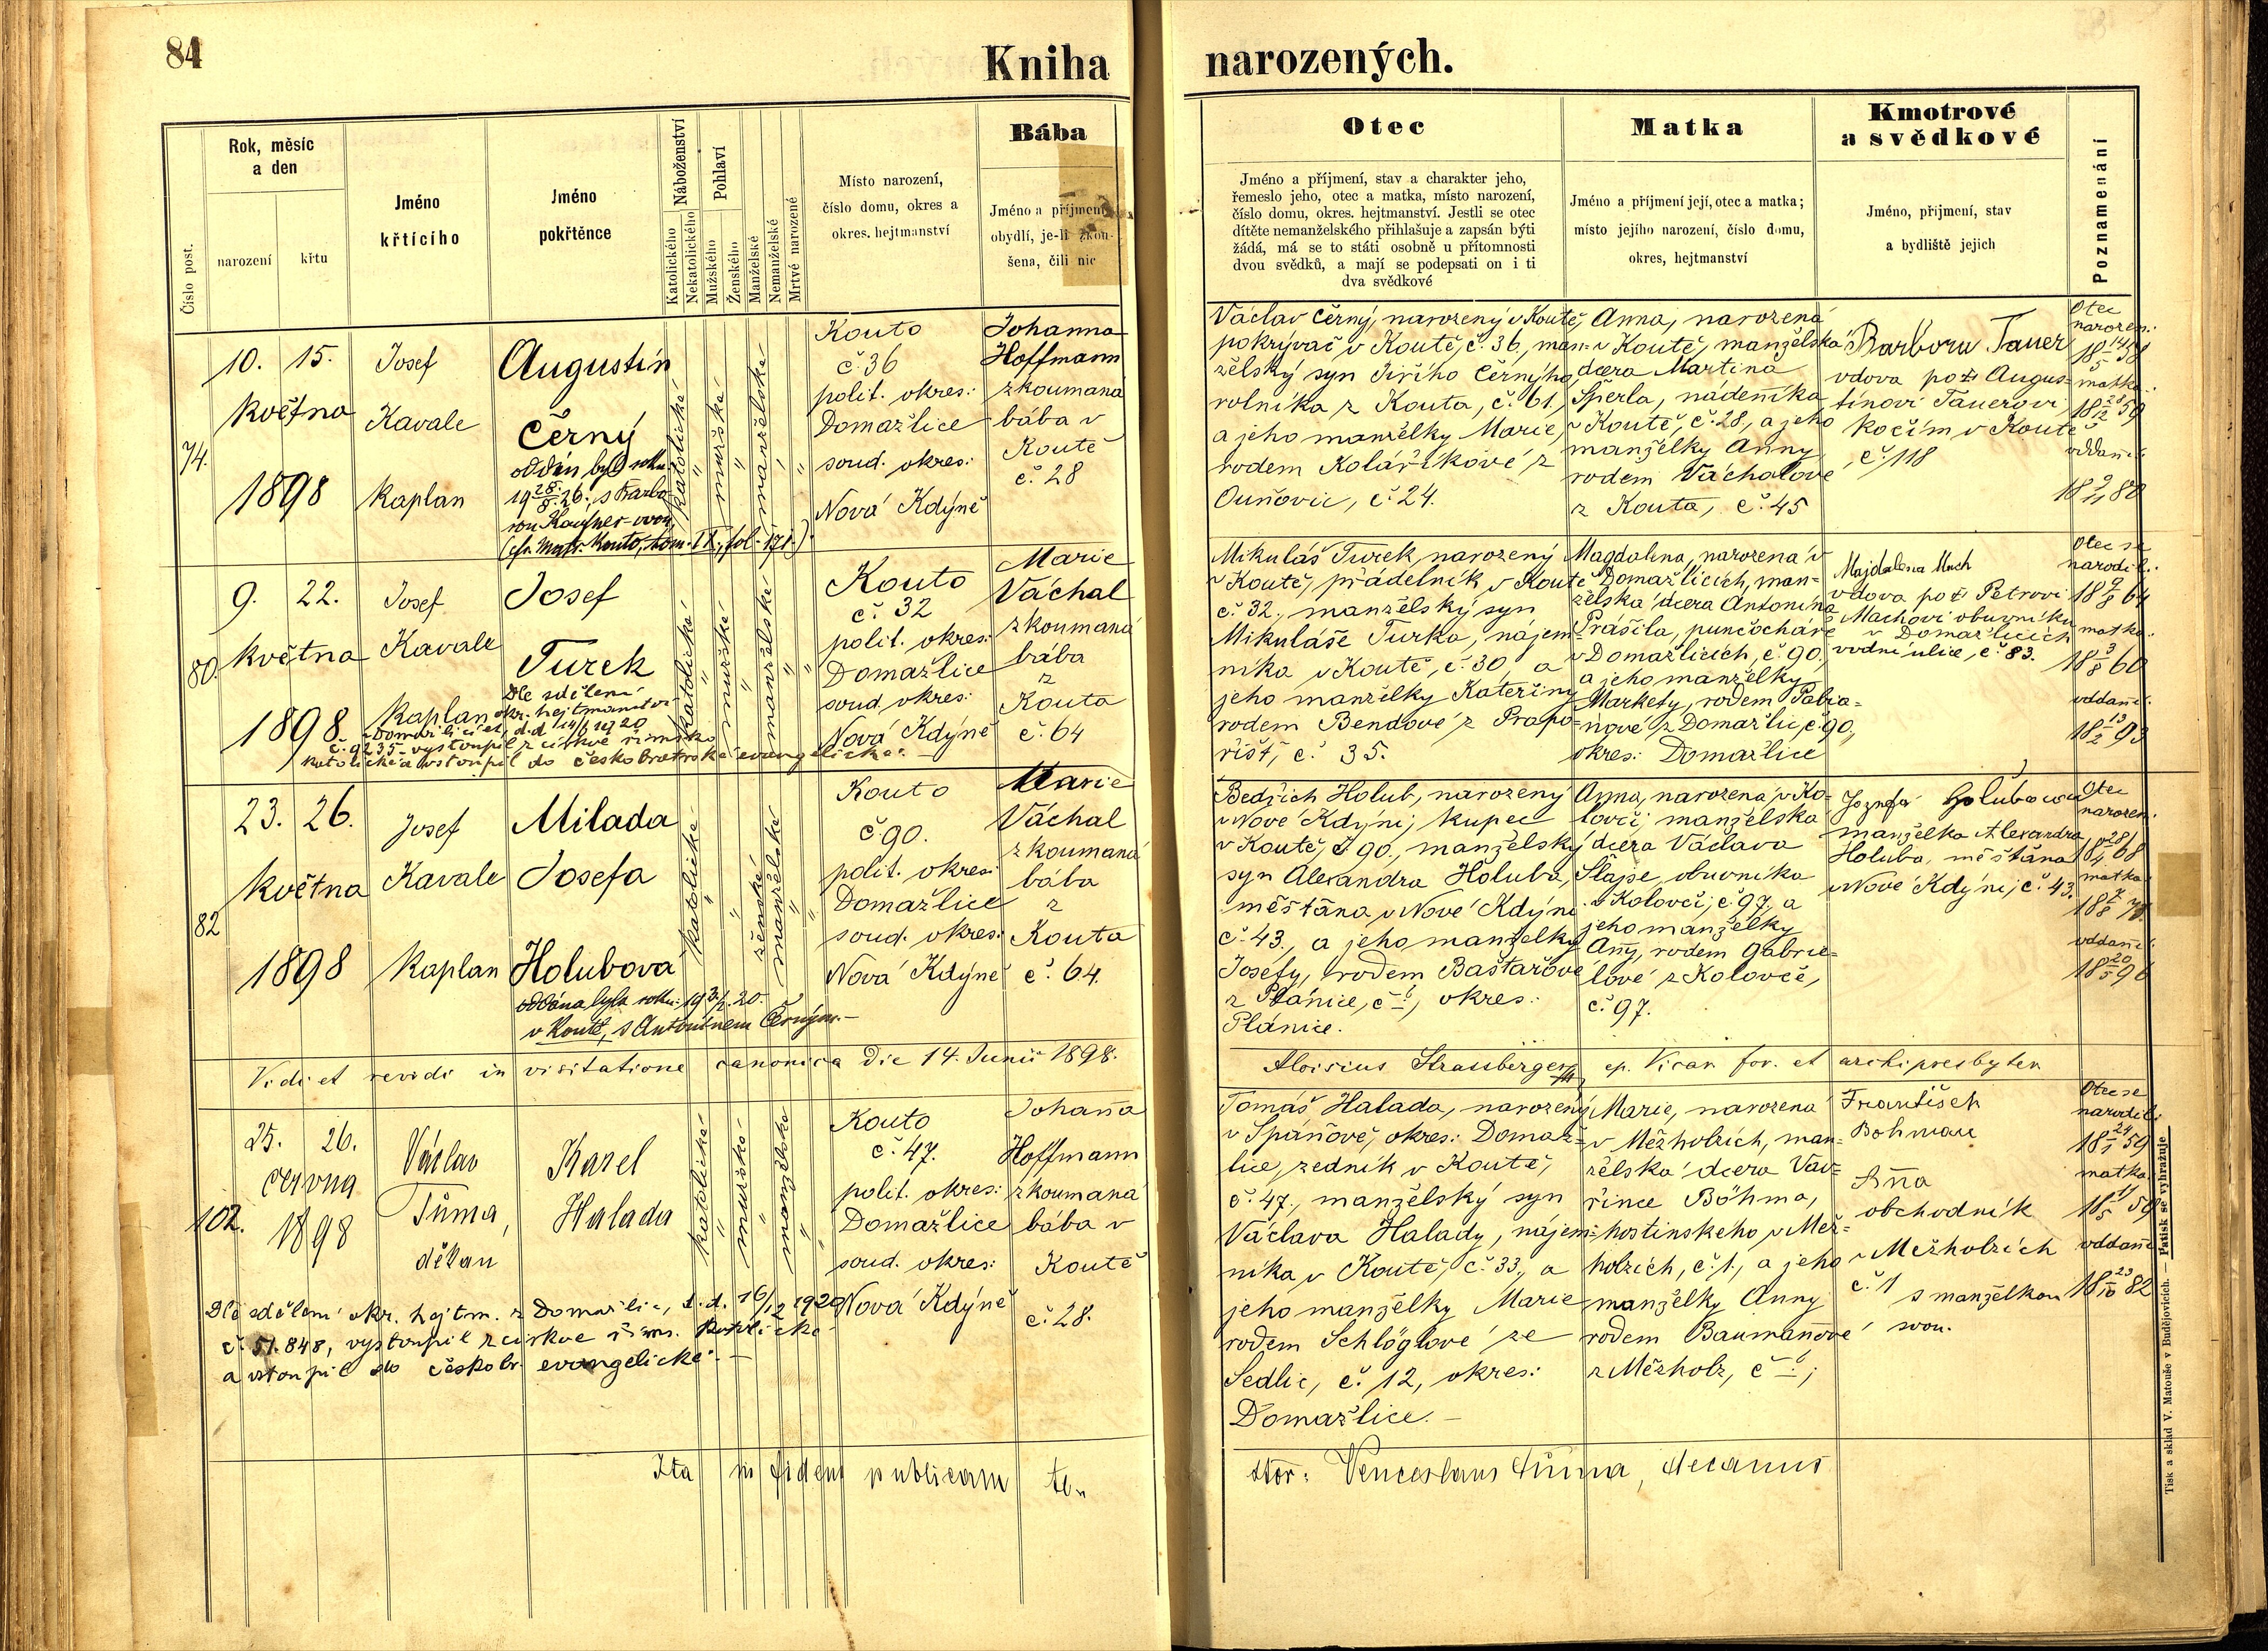 84
Kniha
narozených.
Číslo post.
Rok, měsíc
a den
narození
křtu
Jméno
křtícího
Jméno
pokřtěnce
Náboženství
Katolického
Nekatolického
Pohlaví
Mužského
Ženského
Manželské
Nemanželské
Mrtvě narozené
Místo narození,
číslo domu, okres a
okres. hejtmanství
Bába
Jméno a příjmení
obydlí, je-li zkou-
šena, čili nic
Otec
Jméno a příjmení, stav a charakter jeho,
řemeslo jeho, otec a matka, místo narození,
číslo domu, okres. hejtmanství. Jestli se otec
dítěte nemanželského přihlašuje a zapsán býti
žádá, má se to státi osobně u přítomnosti
dvou svědků, a mají se podepsati on i ti
dva svědkové
Matka
Jméno a příjmení její, otec a matka;
místo jejího narození, číslo domu,
okres, hejtmanství
Kmotrové
a svědkové
Jméno, příjmení, stav
a bydliště jejich
Poznamenání
74.
10. 15.
května
1898
Josef
Kavale
kaplan
Augustin
Černý
oddán byl roku
19 28/8 26, s Barbo-
rou
(cfr. Matr. Kouto, tom. IX, fol. 171.)
katolické
"
mužské
"
manželské
"
"
Kouto
č. 36
polit. okres:
Domažlice
soud. okres:
Nová Kdýně
Johanna
Hoffmann
zkoumaná
bába v
Koutě
č. 28
Václav Černý, narozený v Koutě,
pokrývač v Koutě, č. 36., man-
želský syn Jiřího Černýho,
rolníka z Kouta, č. 61.,
a jeho manželky Marie,
rodem Kolaříkové z
Ouňovic, č. 24.
Anna, narozená
v Koutě, manželská
dcera Martina
Šperla, nádeníka
v Koutě, č. 28., a jeho
manželky Anny
rodem Váchalové
z Kouta, č. 45
Barbora Tauer
vdova po † Augus-
tinovi Tauerovi
kočím v Koutě
č. 118
Otec
narozen:
18 14/5 58
matka:
18 28/12 59
oddaní:
18 9/11 80
80.
9. 22.
května
1898.
Josef
Kavale
kaplan
Josef
Turek
Dle sdělení
okr. hejtmanství
v Domažlicích, d.d. 14/1 1920
č. 9235 vystoupil z církve římsko
katolické a vstoupil do českobratrské evangelické. –
katolické
"
mužské
"
manželské
"
"
Kouto
č. 32
polit. okres:
Domažlice
soud. okres:
Nová Kdýně
Marie
Váchal
zkoumaná
bába
z
Kouta
č. 64
Mikuláš Turek, narozený
v Koutě, přádelník v Koutě
č. 32., manželský syn
Mikuláše Turka, nájem-
níka v Koutě, č. 30, a
jeho manželky Kateřiny
rodem Bendové z Prapo-
řišt, č. 35.
Magdalena, narozená v
Domažlicích, man-
želská dcera Antonína
Prášila, punčocháře
v Domažlicích, č. 90.,
a jeho manželky
Markety, rodem Pabia-
nové z Domažlic, č. 90,
okres: Domažlice
Majdalena Mach
vdova po † Petrovi
Machovi obuvníku
v Domažlicích
vodní ulice, č. 83.
Otec se
narodil:
18 9/8 64
matka:
18 3/8 60
oddaní:
18 13/2 93
82
23. 26.
května
1898
Josef
Kavale
kaplan
Milada
Josefa
Holubová
oddána byla roku: 19 3/2 20.
v Koutě, s Antonínem Černým. –
katolické
"
"
ženské
manželské
"
"
Kouto
č. 90.
polit. okres:
Domažlice
soud. okres:
Nová Kdýně
Marie
Váchal
zkoumaná
bába
z
Kouta
č. 64.
Bedřich Holub, narozený
v Nové Kdýni, kupec
v Koutě, č. 90., manželský
syn Alexandra Holuba,
měštana v Nové Kdýni
č. 43., a jeho manželky
Josefy, rodem Baštařové
z Plánice, č. 6, okres:
Plánice.
Anna, narozená v Ko-
lovči, manželská
dcera Václava
Šlajse, obuvníka
v Kolovči, č. 97, a
jeho manželky
Anny, rodem Gabrie-
lové z Kolovče,
č. 97.
Joznefa Holubowa
manželka Alexandra
Holuba, měštana
v Nové Kdýni, č. 43.
Otec
narozen:
18 28/4 68
matka
oddaní:
18 20/5 96
Vidi et revidi in visitatione canonica die 14. Junii 1898.
Aloisius Strassberger ep. Vicar. for. et archipresbyter
102.
25. 26.
června
1898
Václav
Tůma,
děkan
Karel
Halada
katolické
"
mužské
"
manželské
"
"
Kouto
č. 47.
polit. okres:
Domažlice
soud. okres:
Nová Kdýně
Johana
Hoffmann
zkoumaná
bába v
Koutě
č. 28.
Dle sdělení okr. hejtm. z Domažlic, d.d. 16/12 1920
č. 51.848, vystoupil z církve řims. katolické
a vstoupil do českobr. evangelické. –
Tomáš Halada, narozený
v Spáňově, okres: Domaž-
lice, zedník v Koutě,
č. 47., manželský syn
Václava Halady, nájem-
níka v Koutě, č. 33., a
jeho manželky Marie
rodem Schlöglové ze
Sedlic, č. 12, okres:
Domažlice. –
Marie, narozená
v Měžholzích, man-
želská dcera Vav-
řince Böhma,
hostinského v Měž-
holzích, č. 1., a jeho
manželky Anny
rodem Baumanové
z Měžholz, č. 6;
František
Bohman
Anna
obchodník
v Mežholzích
č. 1
s manželkou
svou.
Otec se
narodil:
18 24/1 59
matka
18 1/5 59
oddaní
18 23/10 82
Ita in fidem publicam
Venceslaus Tůma, decanus
Tisk a sklad V. Matouše v Budějovicích. — Patisk se vyhražuje